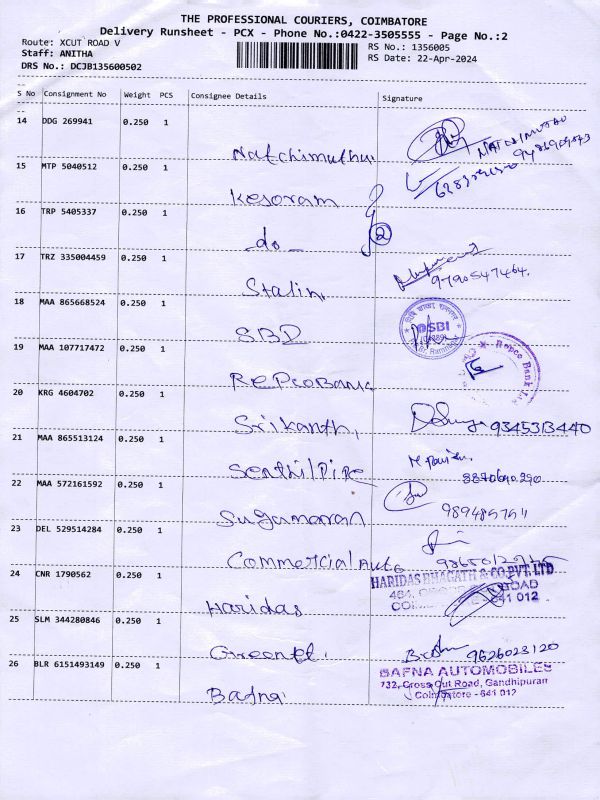 THE PROFESSIONAL COURIERS, COIMBATORE
Delivery Runsheet - PCX - Phone No.:0422-3505555 - Page No.:2
Route: XCUT ROAD V
Staff: ANITHA
DRS No.: DCJB135600502
RS No.: 1356005
RS Date: 22-Apr-2024
S No Consignment No Weight PCS Consignee Details Signature
14 DDG 269941 0.250 1
Natchimuthu
15 MTP 5040512 0.250 1
Kesoram
16 TRP 5405337 0.250 1
-do- 2
17 TRZ 335004459 0.250 1
Stalin 9790547464.
18 MAA 865668524 0.250 1
SBD SBI
19 MAA 107717472 0.250 1
Repco Bank Repco Bank
20 KRG 4604702 0.250 1
Srikanth, 9345313440
21 MAA 865513124 0.250 1
Senthil Pipe 8870690290
22 MAA 572161592 0.250 1
Sugamaran
23 DEL 529514284 0.250 1
Commercial Auto
24 CNR 1790562 0.250 1
HARIDAS BHAGATH & CO PVT. LTD
ROAD
641 012
Haridas
25 SLM 344280846 0.250 1
9626023120
26 BLR 6151493149 0.250 1
BAFNA AUTOMOBILES
732, Cross Cut Road, Gandhipuran
Coimbatore - 641 012
Bafna